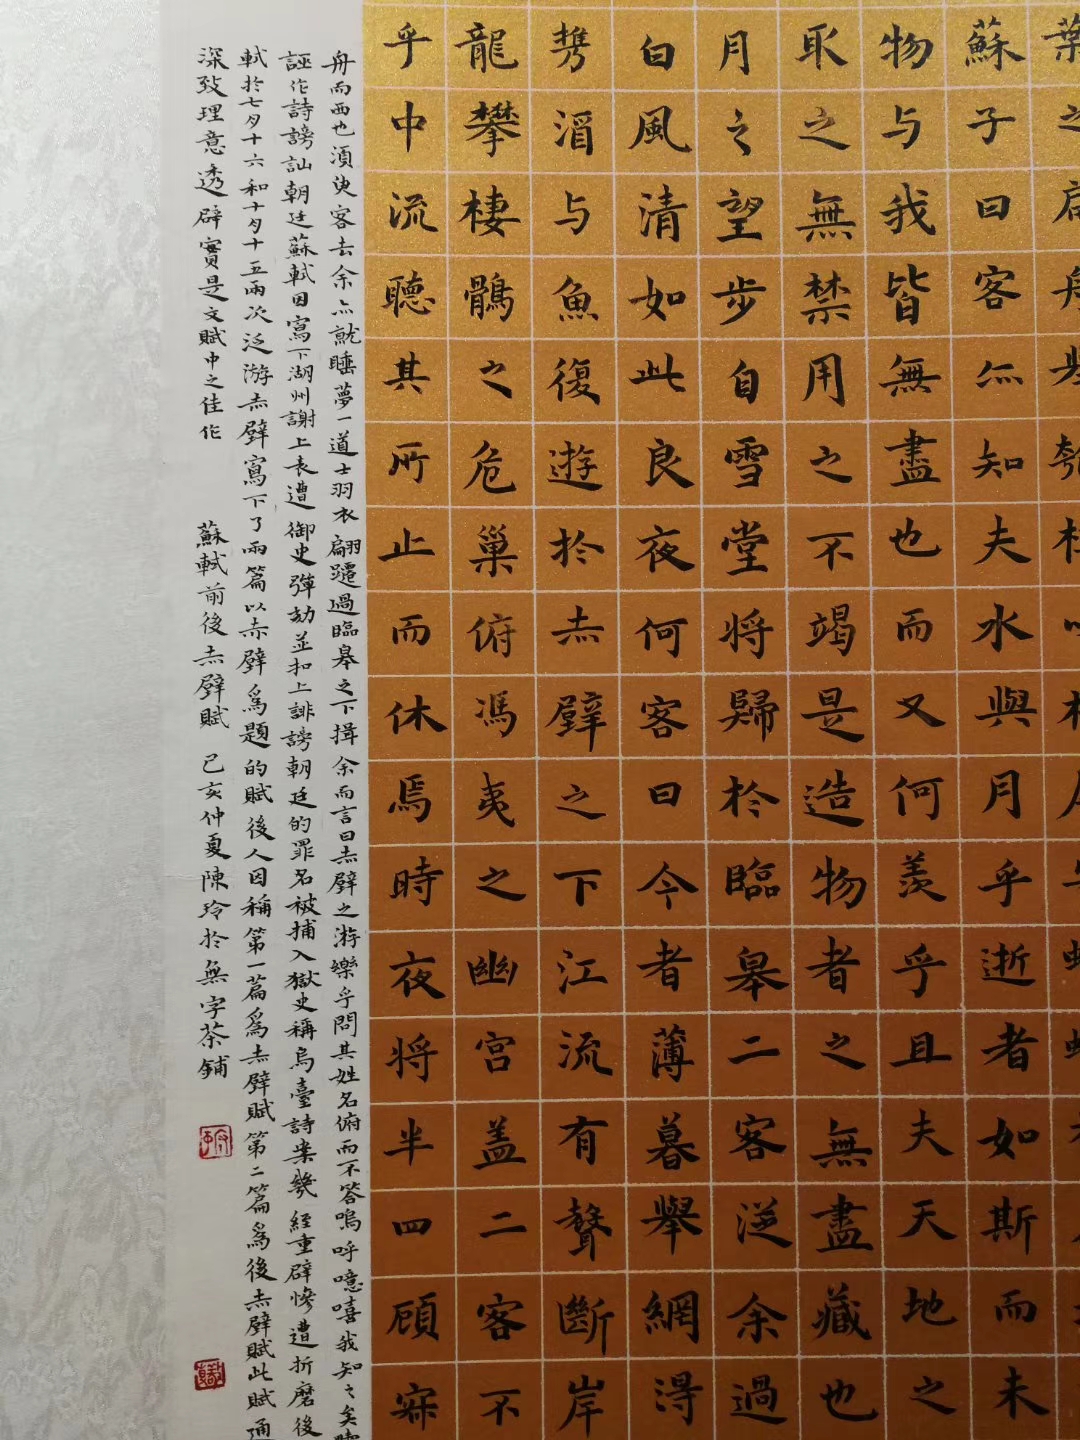 蘇子曰客亦知夫水與月乎逝者如斯而未
物与我皆無盡也而又何羨乎且夫天地之
取之無禁用之不竭是造物者之無盡藏也
月之望步自雪堂將歸於臨皋二客從余過
白風清如此良夜何客曰今者薄暮舉網得
携酒与魚復遊於赤壁之下江流有聲斷岸
龍攀棲鶻之危巢俯馮夷之幽宮盖二客不
乎中流聽其所止而休焉時夜將半四顧寂
舟而西也須臾客去余亦就睡夢一道士羽衣翩躚過臨皋之下揖余而言曰赤壁之游樂乎問其姓名俯而不答嗚呼噫嘻我知之矣
誣作詩謗訕朝廷蘇軾因寫下湖州謝上表遭御史彈劾並扣上誹謗朝廷的罪名被捕入獄史稱烏臺詩案幾經重辟慘遭折磨後
軾於七月十六和十月十五兩次泛游赤壁寫下了兩篇以赤壁爲題的賦後人因稱第一篇爲赤壁賦第二篇爲後赤壁賦此賦通
深致理意透辟實是文賦中之佳作 蘇軾前後赤壁賦 己亥仲夏陳玲於無字茶鋪